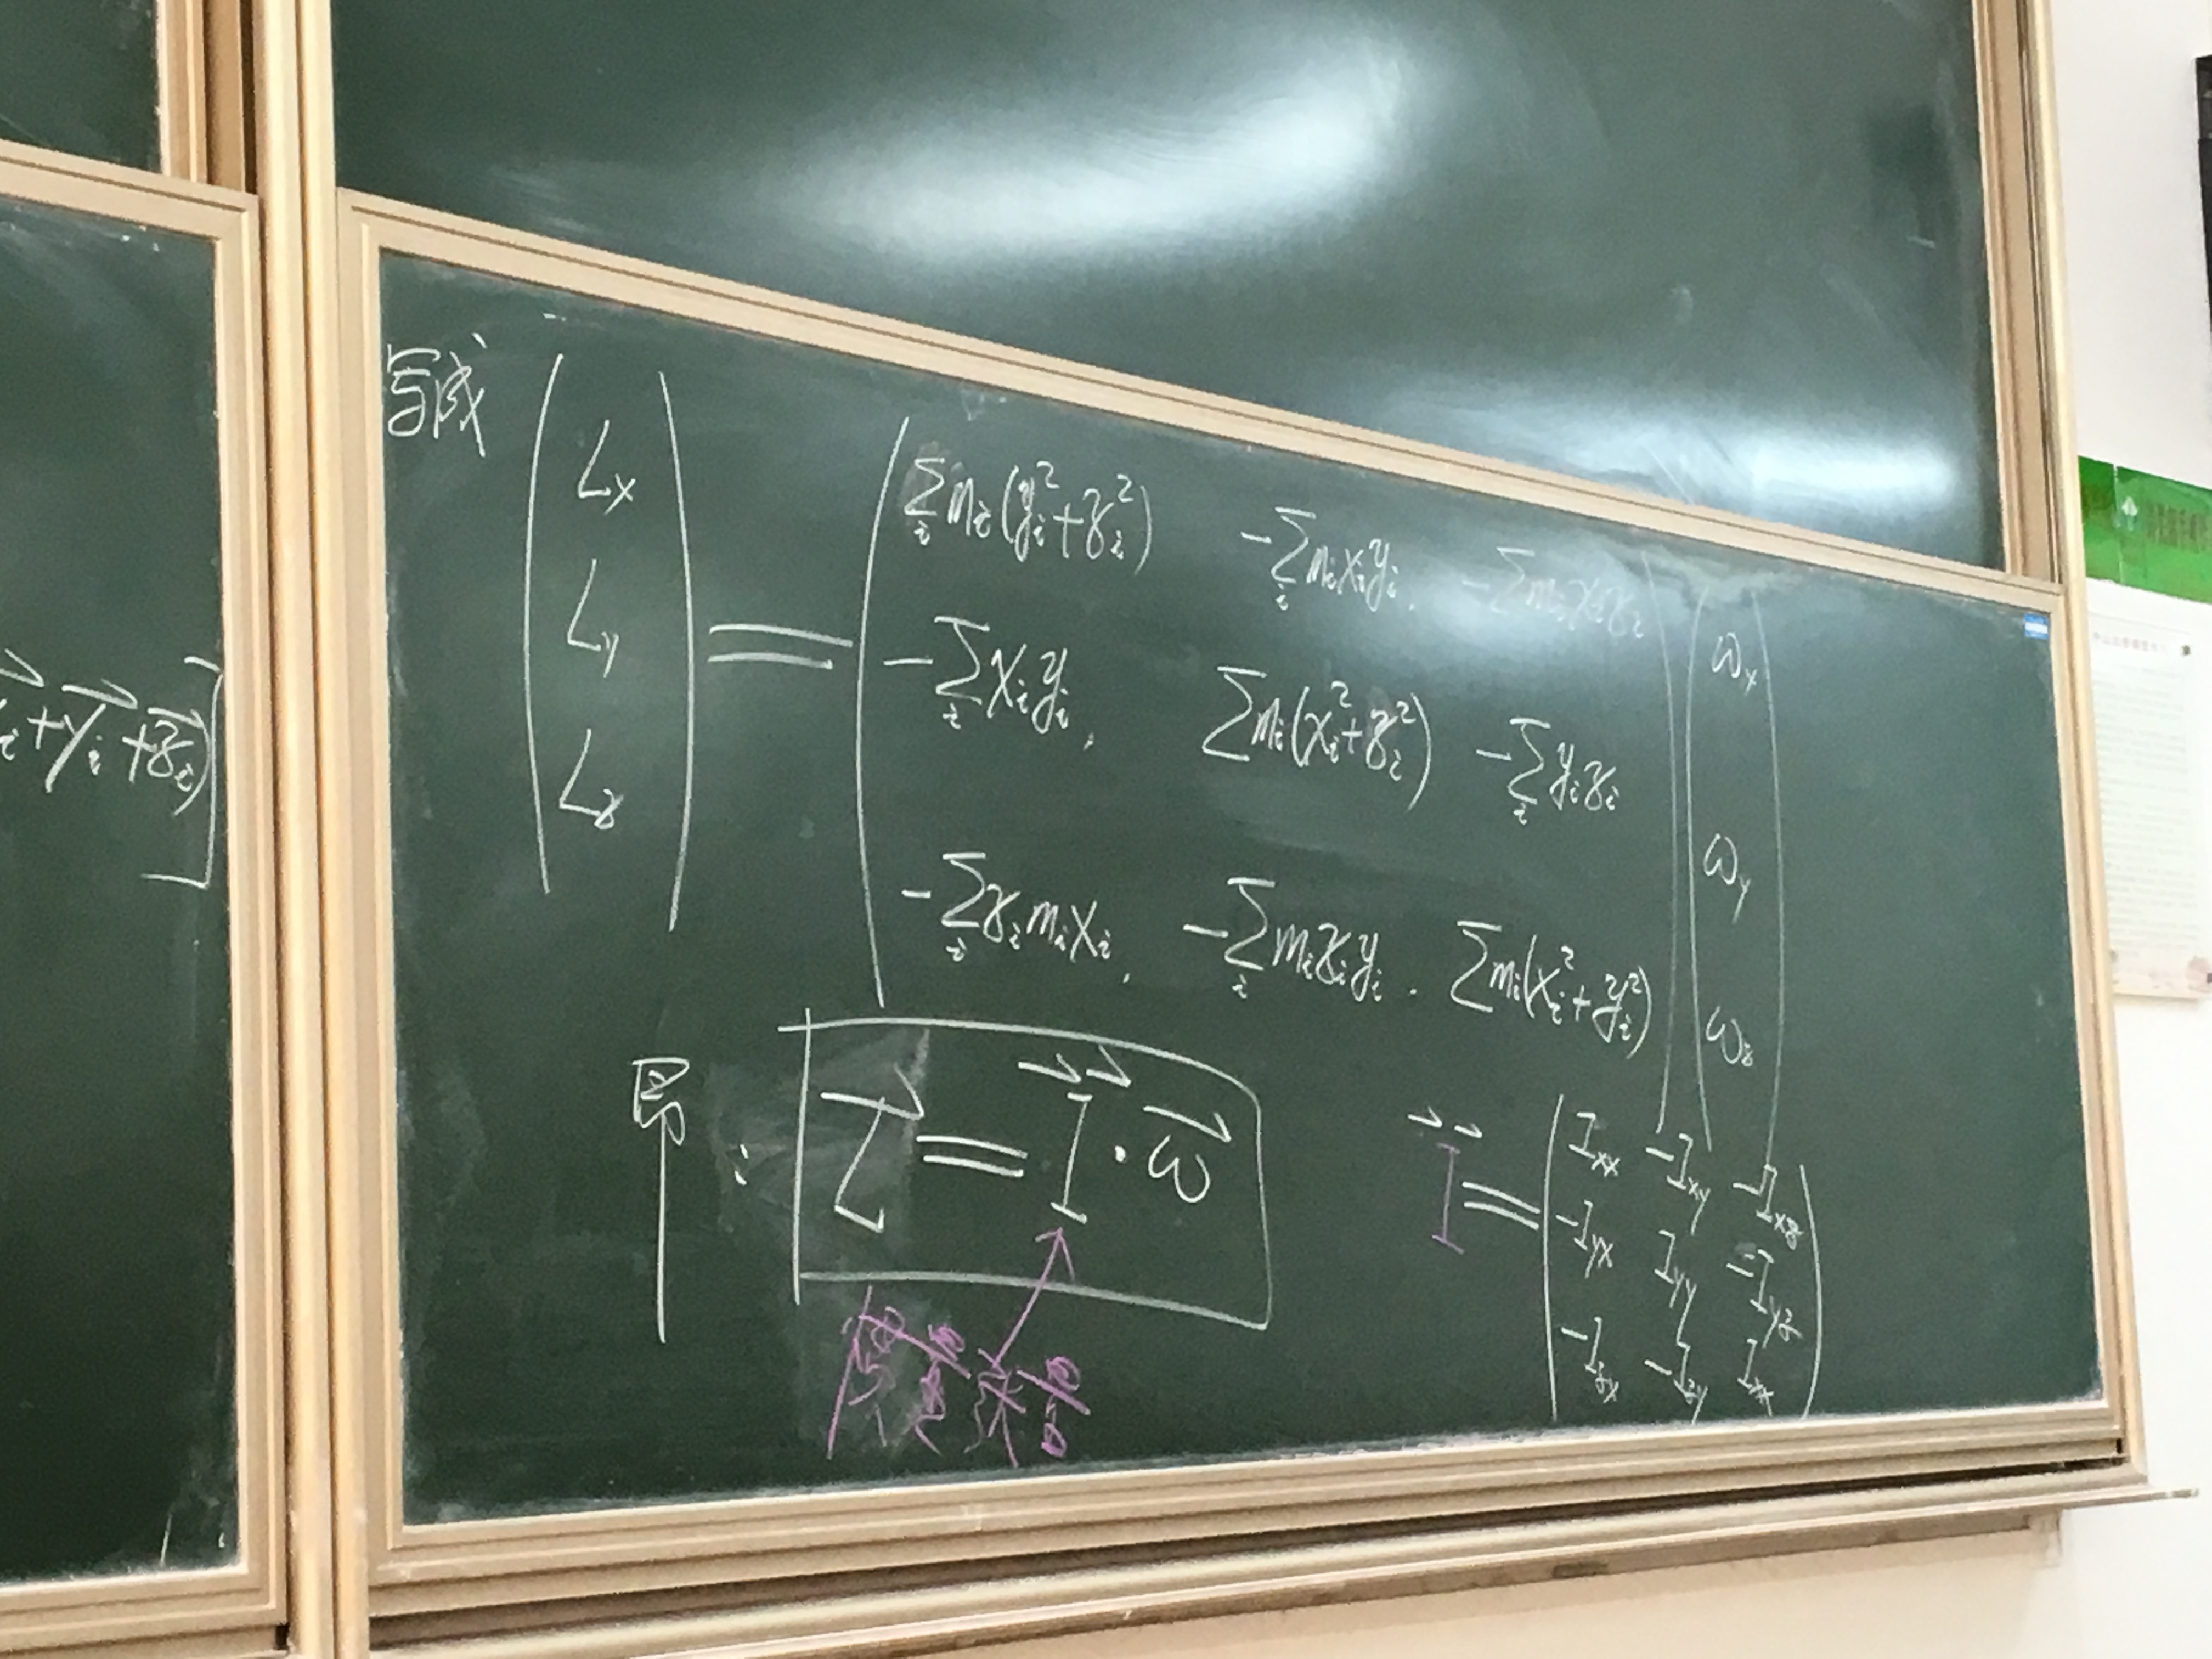 ⃗i+y⃗i+z⃗i)]
写成 (Lx Ly Lz) = (
∑i mi(yi²+zi²) -∑i mixiyi, -∑mixizi
-∑i xiyi, ∑mi(xi²+zi²) -∑i yizi
-∑i zimixi, -∑i miziyi, ∑mi(xi²+yi²)
) (ωx ωy ωz)
即: L⃗ = I⃗⃗ · ω⃗
惯量张量
I⃗⃗ = (
Ixx -Ixy -Ixz
-Iyx Iyy -Iyz
-Izx -Izy Ixx
)